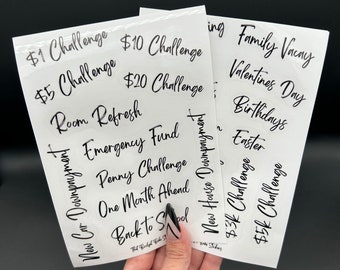 $1 Challenge
$10 Challenge
$5 Challenge
$20 Challenge
Room Refresh
Emergency Fund
Penny Challenge
One Month Ahead
Back to School
New Car Downpayment
Family Vacay
Valentines Day
Birthdays
Easter
New House Downpayment
$3k Challenge
$5k Challenge